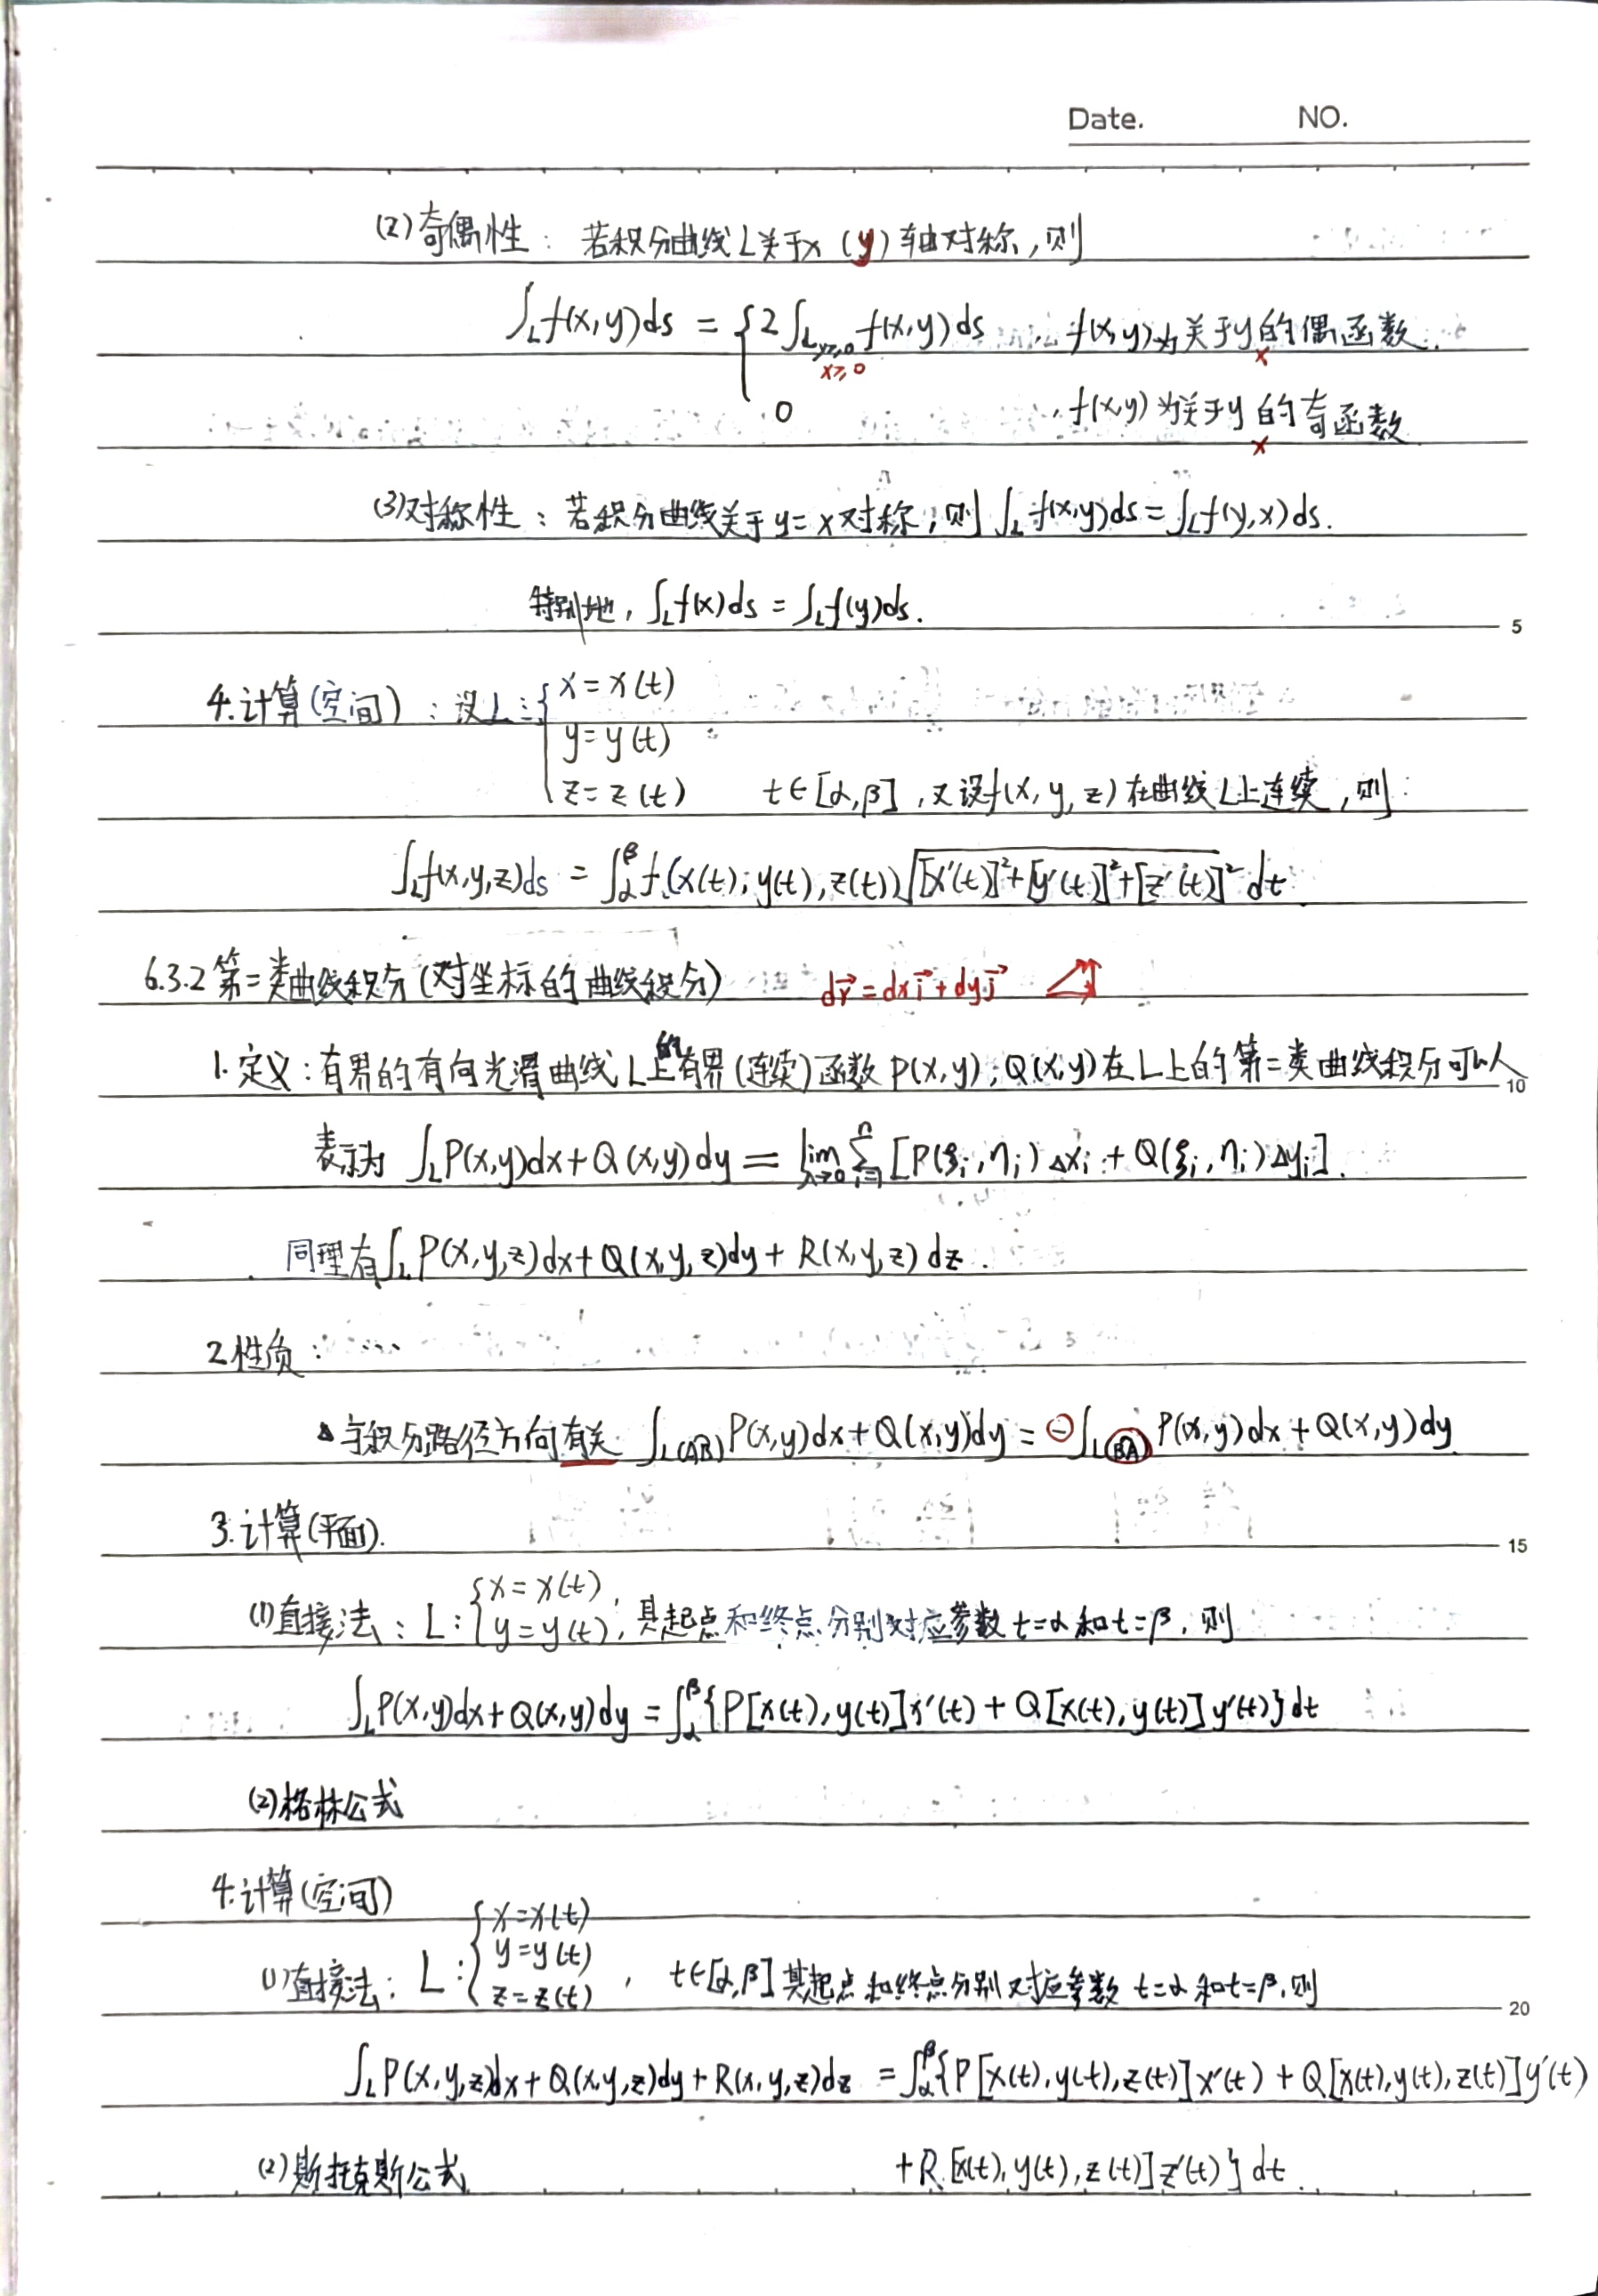 Date. NO.
(2) 奇偶性: 若积分曲线L关于x (y) 轴对称, 则
∫_L f(x,y)ds = { 2∫_{L y≥0} f(x,y)ds , f(x,y)为关于y的偶函数.
x≥0 x
0 , f(x,y)为关于y的奇函数
x
(3) 对称性: 若积分曲线关于y=x对称, 则 ∫_L f(x,y)ds = ∫_L f(y,x)ds.
特别地, ∫_L f(x)ds = ∫_L f(y)ds.
5
4.计算(空间): 设L: { x=x(t)
y=y(t)
z=z(t) t∈[α,β], 又设f(x,y,z)在曲线L上连续, 则:
∫_L f(x,y,z)ds = ∫_α^β f(x(t),y(t),z(t))√([x'(t)]²+[y'(t)]²+[z'(t)]²) dt
6.3.2 第二类曲线积分(对坐标的曲线积分) dr⃗=dxi⃗+dyj⃗
1.定义: 有界的有向光滑曲线L上的有界(连续)函数P(x,y), Q(x,y)在L上的第二类曲线积分可以
10
表示为 ∫_L P(x,y)dx+Q(x,y)dy = lim_{λ→0} Σ_{i=1}^n [P(ξ_i,η_i)Δx_i + Q(ξ_i,η_i)Δy_i].
同理有∫_L P(x,y,z)dx+Q(x,y,z)dy+R(x,y,z)dz.
2.性质: ...
△ 与积分路径方向有关 ∫_{L(AB)} P(x,y)dx+Q(x,y)dy = ⊖∫_{L(BA)} P(x,y)dx+Q(x,y)dy.
3.计算(平面).
15
(1)直接法: L: { x=x(t)
y=y(t), 具起点和终点分别对应参数t=α和t=β, 则
∫_L P(x,y)dx+Q(x,y)dy = ∫_α^β {P[x(t),y(t)]x'(t) + Q[x(t),y(t)]y'(t)}dt
(2)格林公式
4.计算(空间)
(1)直接法: L: { x=x(t)
y=y(t)
z=z(t) , t∈[α,β] 其起点和终点分别对应参数t=α和t=β, 则
20
∫_L P(x,y,z)dx+Q(x,y,z)dy+R(x,y,z)dz = ∫_α^β{P[x(t),y(t),z(t)]x'(t) + Q[x(t),y(t),z(t)]y'(t)
(2)斯托克斯公式 +R[x(t),y(t),z(t)]z'(t)}dt.